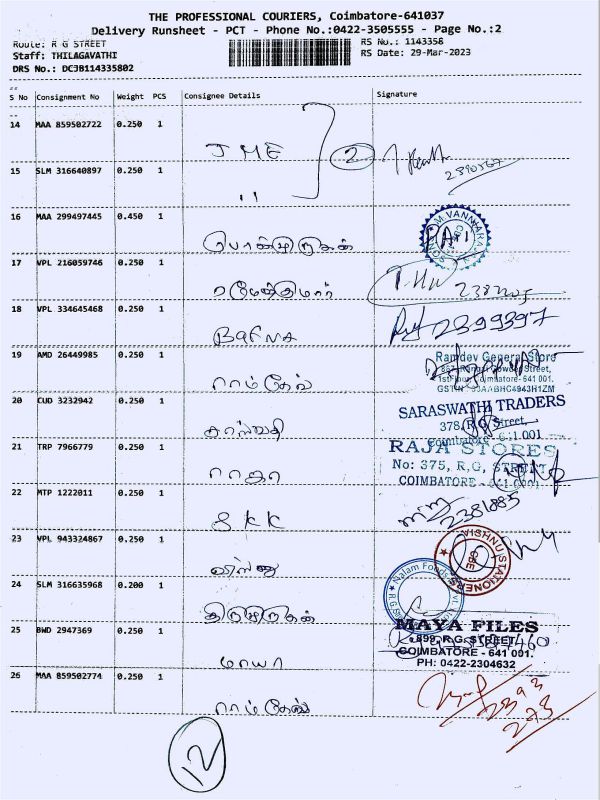 THE PROFESSIONAL COURIERS, Coimbatore-641037
Delivery Runsheet - PCT - Phone No.:0422-3505555 - Page No.:2
Route: R G STREET
RS No.: 1143358
Staff: THILAGAVATHI
RS Date: 29-Mar-2023
DRS No.: DC3B114335802
S No Consignment No Weight PCS Consignee Details Signature
14 MAA 859502722 0.250 1 JME 2
15 SLM 316640897 0.250 1 "
16 MAA 299497445 0.450 1 பொன்முருகன்
17 VPL 216059746 0.250 1
18 VPL 334645468 0.250 1 Bafna 2399397
19 AMD 26449985 0.250 1 ராம்தேவ்
Ramdev General Store
1st Floor, Coimbatore- 641 001.
20 CUD 3232942 0.250 1
SARASWATHI TRADERS
378, R.G. Street,
Coimbatore - 641 001
21 TRP 7966779 0.250 1 ராஜா
RAJA STORES
No: 375, R,G, STREET
COIMBATORE - 641 0001
22 MTP 1222011 0.250 1 SKK 2381885
23 VPL 943324867 0.250 1 விஷ்ணு
VISHNU STATIONERS
CBE
24 SLM 316635968 0.200 1 திருமுருகன்
Nalam Foods
25 BWD 2947369 0.250 1 மாயா
MAYA FILES
899, R.G. STREET,
COIMBATORE - 641 001.
PH: 0422-2304632
26 MAA 859502774 0.250 1 ராம்தேவ்
2393
273
12